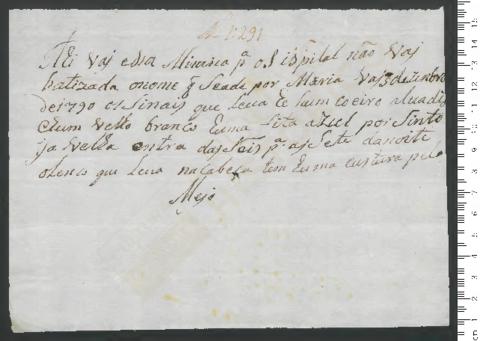 1291
Ahi vai esta Minina pª o S ispital não vaj
batizada o nome q̃ Seade por Maria Vas 3 de
de 1790 os sinais que leva he hum coeiro
e hum vello branco e uma fita azul por sinto
ja vella entra das seis pª as sete da noite
o lenço que leva na cabeça tem huma custura pelo
Mejo